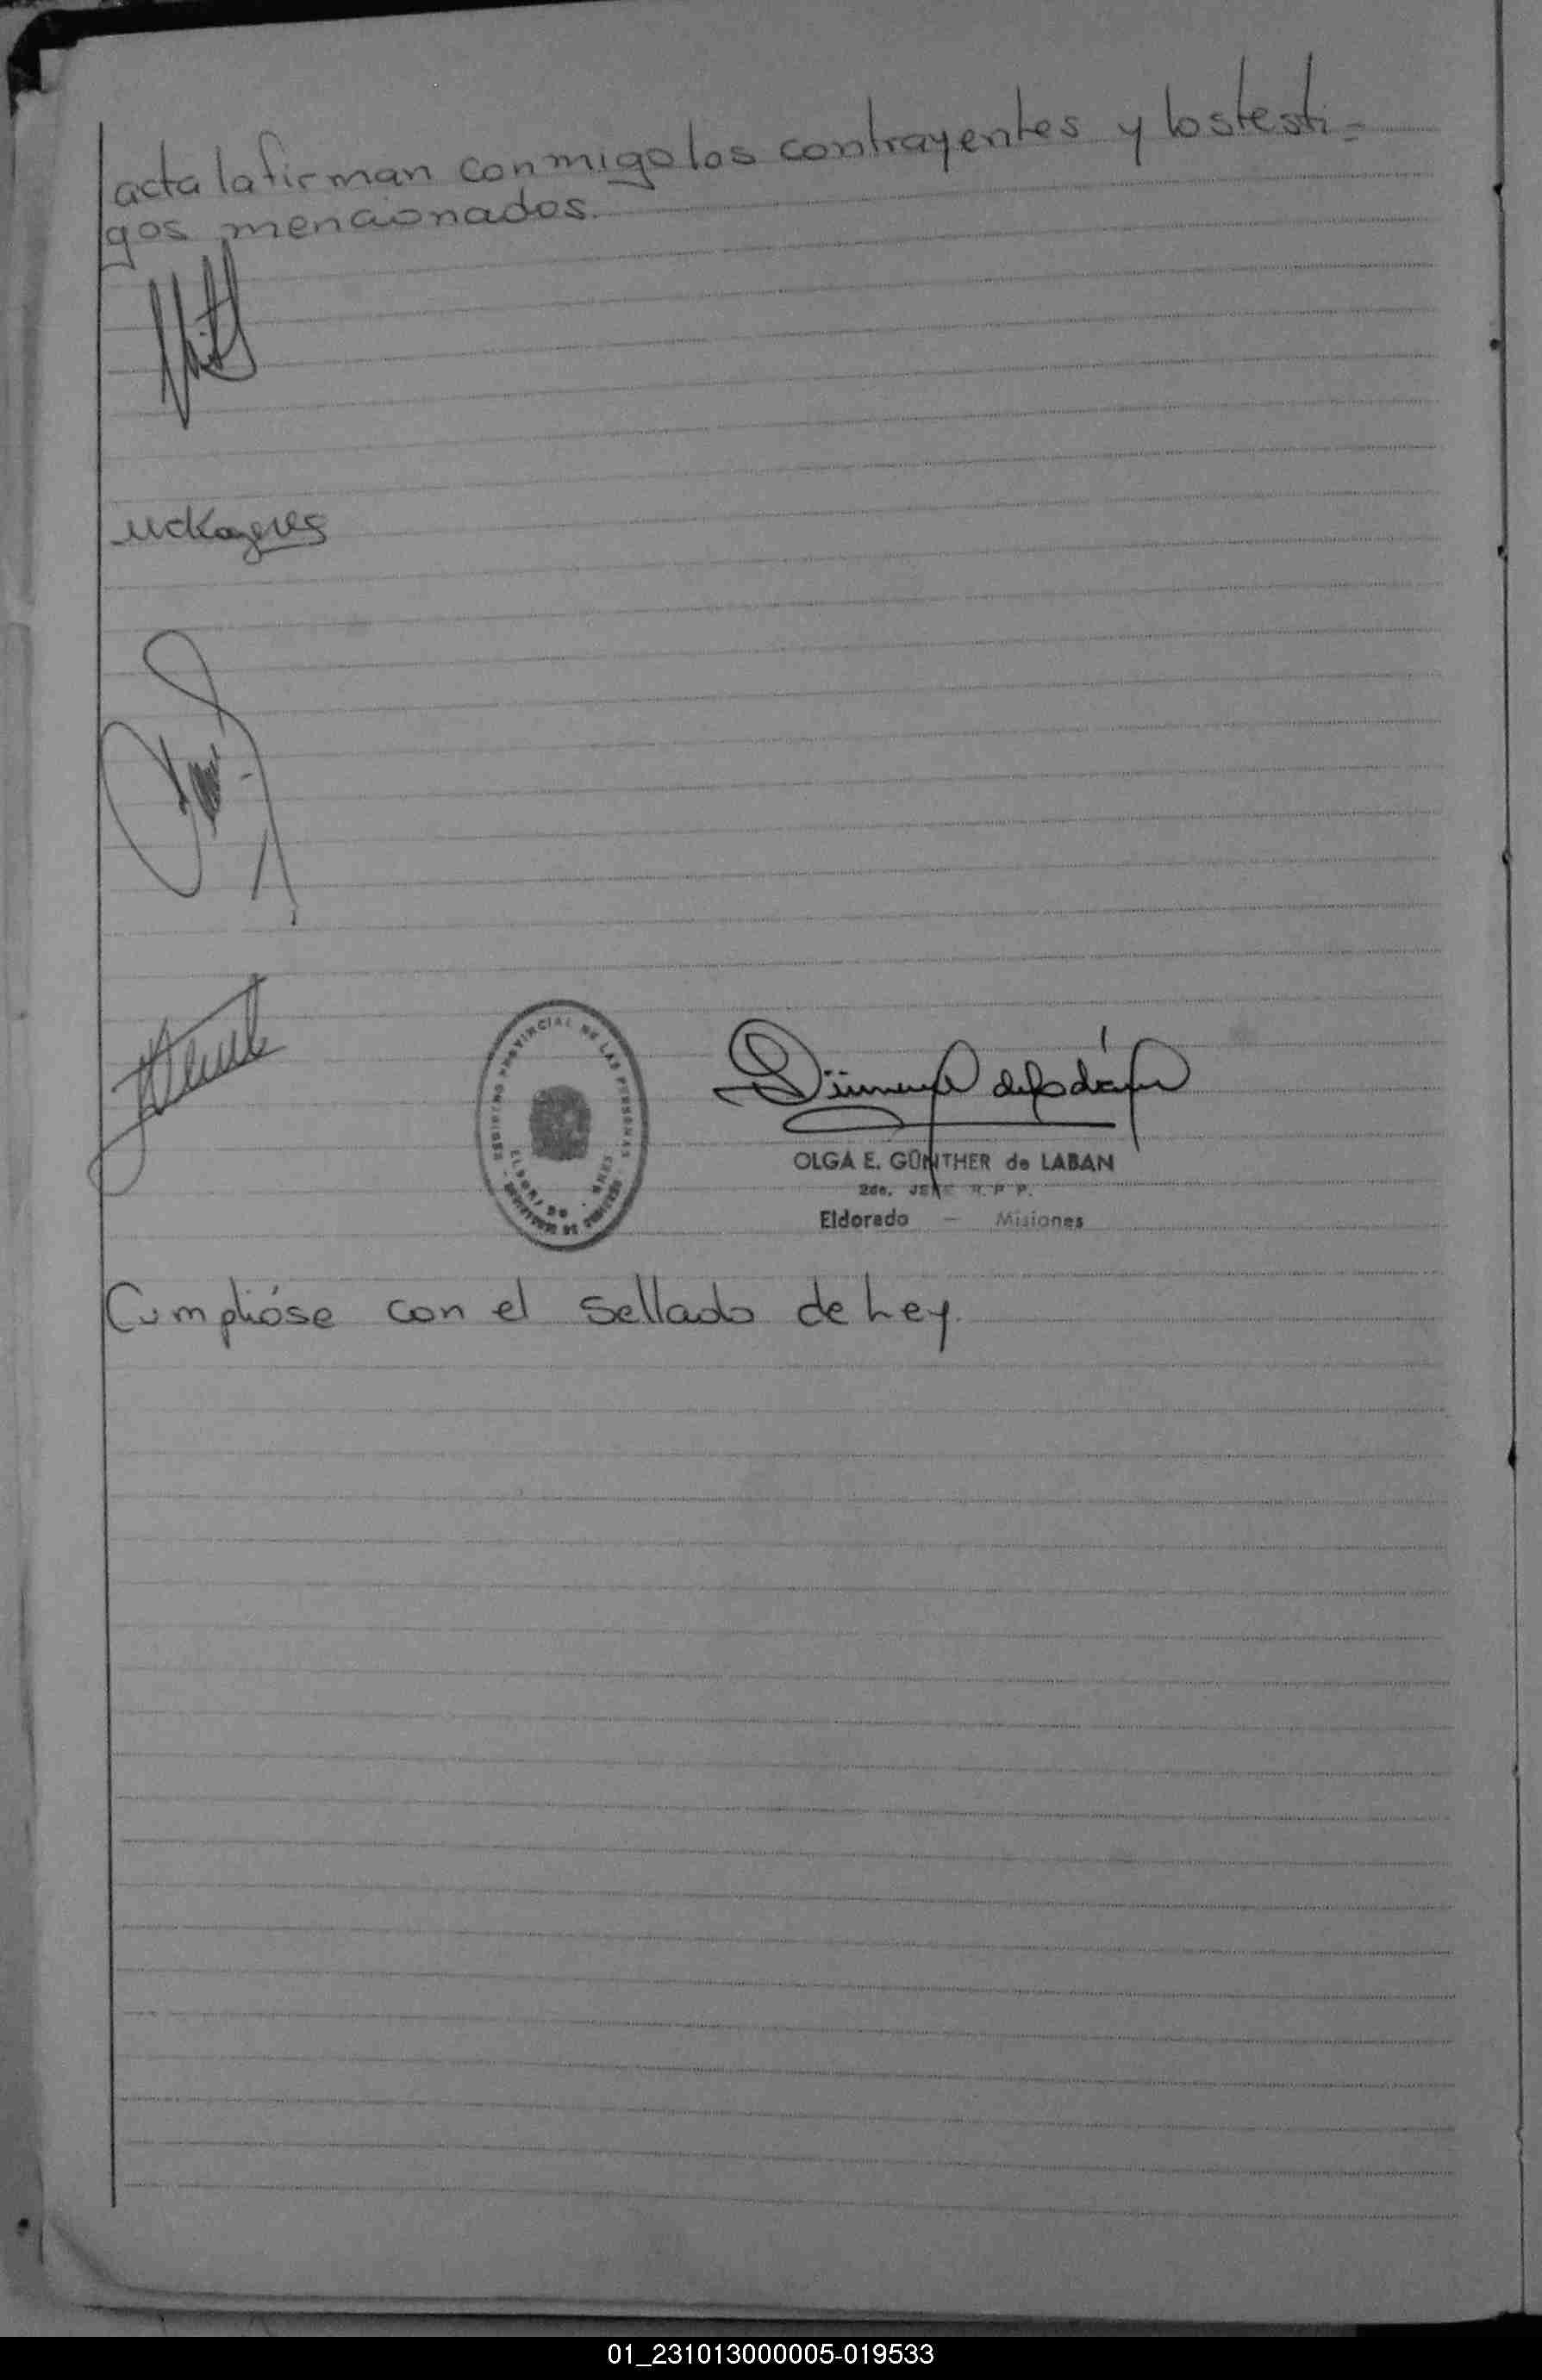 acta la firman conmigo los contrayentes y los testi-
gos mencionados.
REGISTRO PROVINCIAL DE LAS PERSONAS
ELDORADO
OLGA E. GÜNTHER de LABAN
2do. JEFE R. P. P.
Eldorado — Misiones
Cumplióse con el sellado de Ley.
01_231013000005-019533